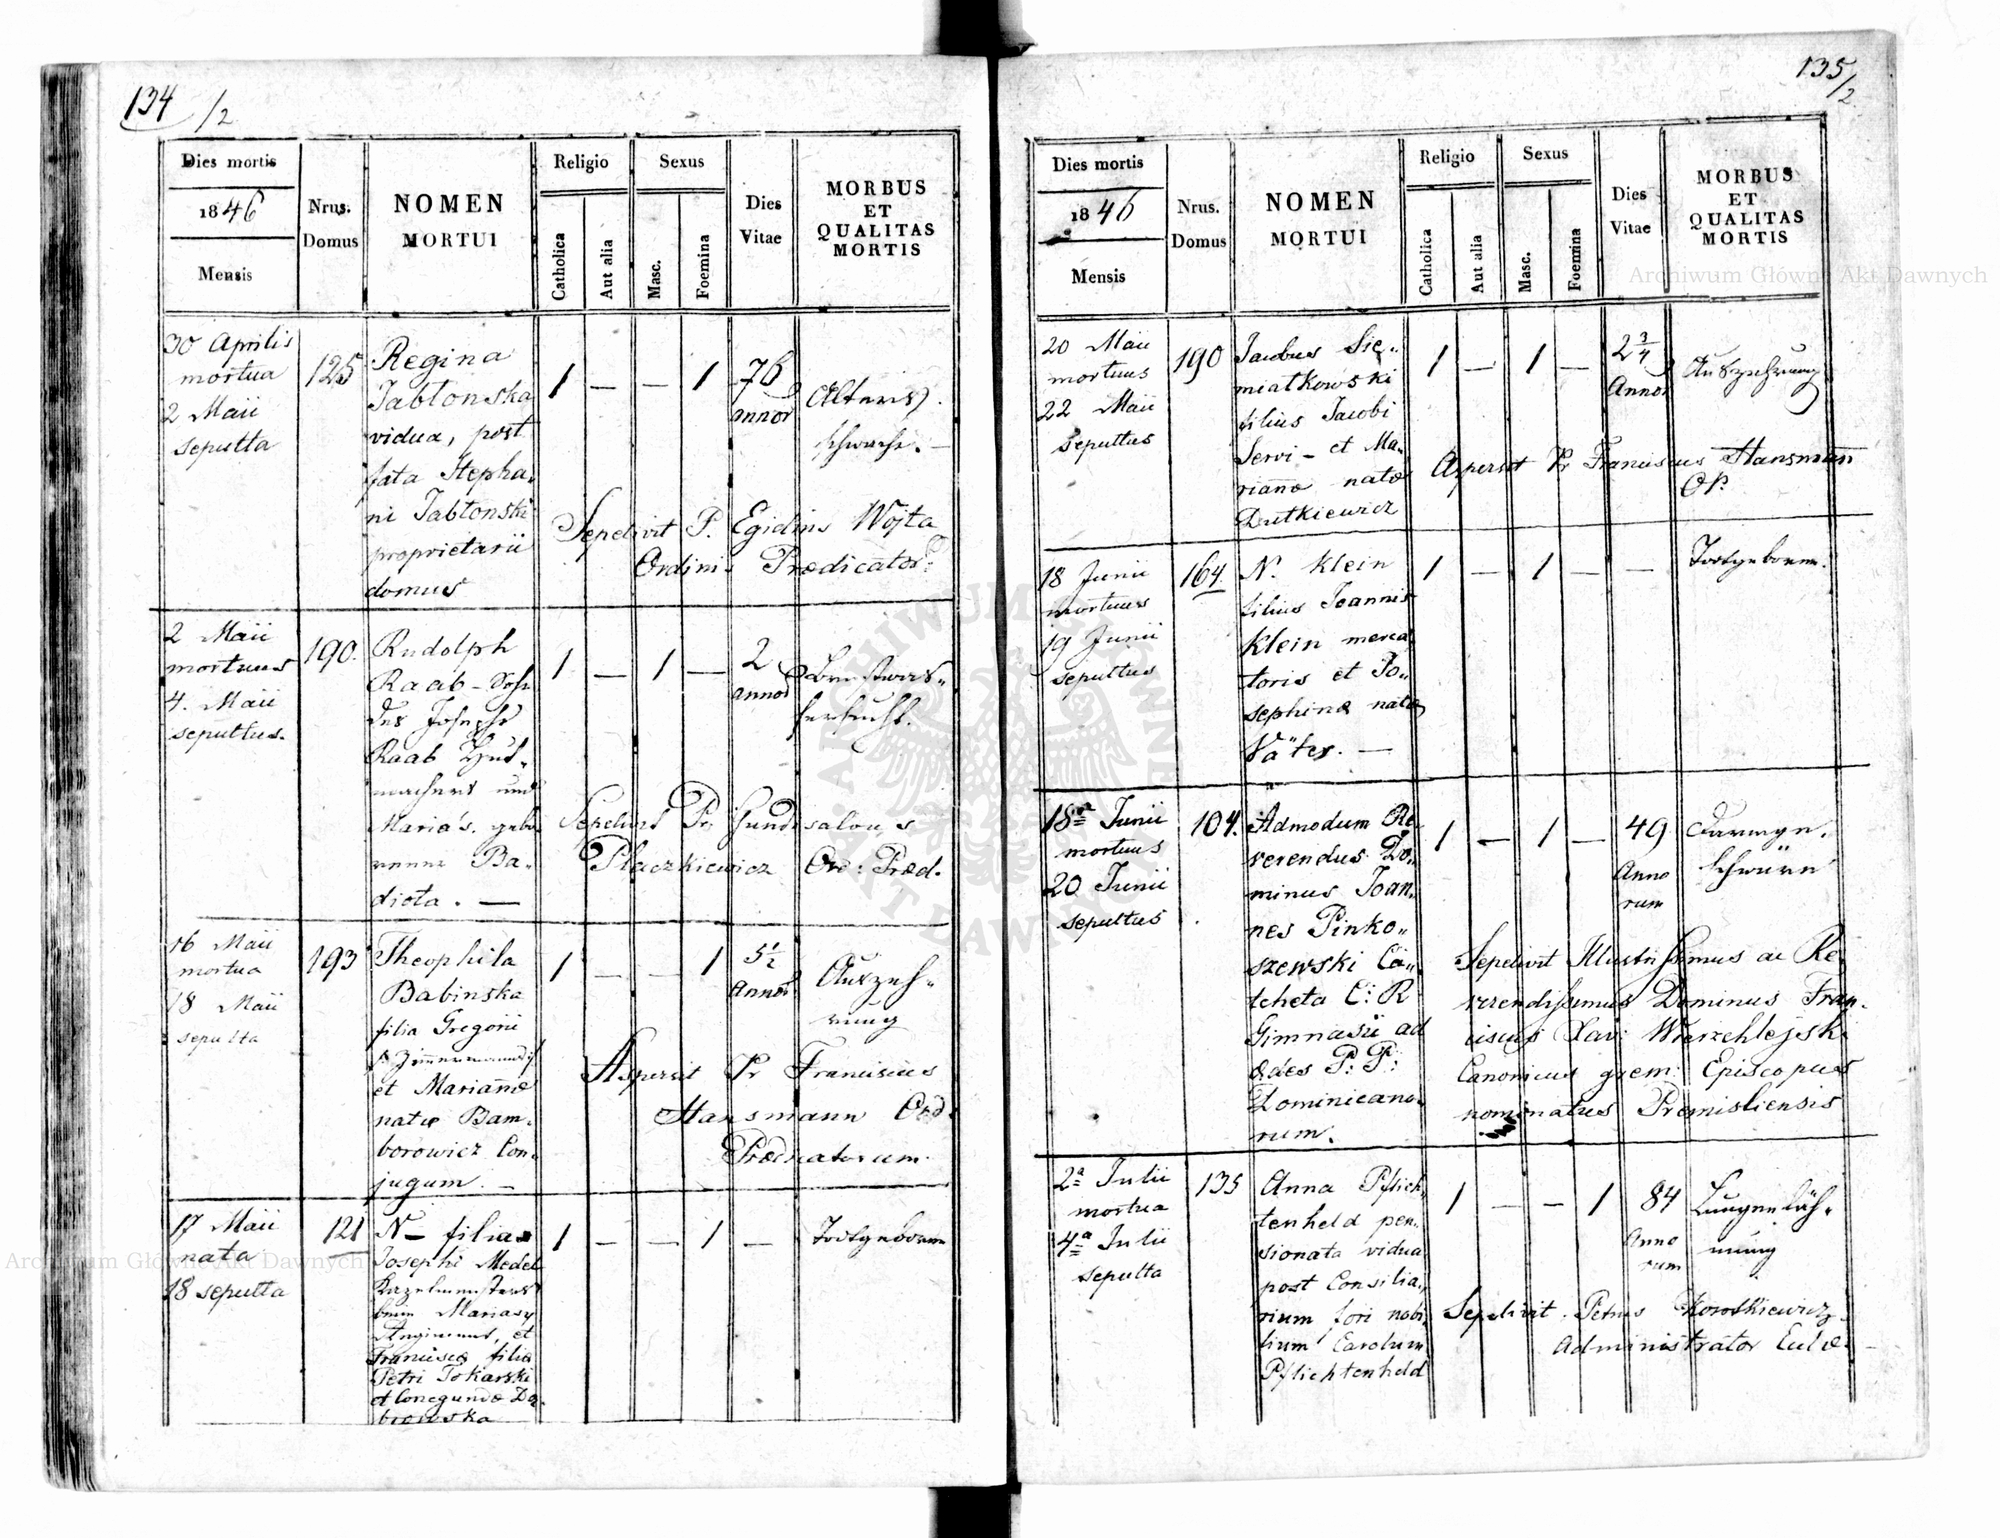 134/2
Dies mortis
1846
Mensis
Nrus.
Domus
NOMEN
MORTUI
Religio
Catholica
Aut alia
Sexus
Masc.
Foemina
Dies
Vitae
MORBUS
ET
QUALITAS
MORTIS
30 Aprilis
mortua
2 Maii
sepulta
125
Regina
Jabłonska
vidua, post
fata Stepha,
ni Jabłonski
proprietarii
domus
1 — — 1
76
annor
Alters,
schwäche. —
Sepelivit P. Egidius Wojta
Ordinis Prædicator:
2 Maii
mortuus
4. Maii
sepultus.
190.
Rudolph
Raab - Sohn
des Josephs
Raab Hut,
machers und
Maria's. gebo
renne Ba-
diota. —
1 — 1 —
2
annor
Brustwas-
sersucht.
Sepelivit Pr Gundisalvus
Placzkiewicz Ord: Præd.
16 Maii
mortua
18 Maii
sepulta
193
Theophila
Babinska
filia Gregorii
et Mariannæ
natæ Bam-
borowicz Con,
jugum. —
1 — — 1
5½
Annor
Auszeh-
rung
Aspersit Pr Franciscus
Hansmann Ord:
Prædicatorum.
17 Maii
nata
18 sepulta
121
N— filia
Josephi Medel
beim Mariasy
Regiment, et
Franciscæ filia
Petri Tokarski
et Conegundæ Da-
browska
1 — — 1 —
Todtgeboren
135/2
Dies mortis
1846
Mensis
Nrus.
Domus
NOMEN
MORTUI
Religio
Catholica
Aut alia
Sexus
Masc.
Foemina
Dies
Vitae
MORBUS
ET
QUALITAS
MORTIS
20 Maii
mortuus
22 Maii
sepultus
190
Jacobus Sie,,
miatkowski
filius Jacobi
Servi - et Ma-
riannæ natæ
Dutkiewicz
1 — 1 —
2¾
Annor
Auszehrung
Aspersit Pr Franciscus Hansmann
OP.
18 Junii
mortuus
19 Junii
sepultus
164.
N. Klein
filius Joannis
Klein merca
toris et Jo,,
sephinæ natæ
Väter. —
1 — 1 — —
Todtgeboren.
18ª Junii
mortuus
20 Junii
sepultus
104.
Admodum Re
verendus Do,,
minus Joan,
nes Pinko,,
szewski Ca,,
techeta C: R
Gimnasii ad
ædes P: P:
Dominicano-
rum.
1 — 1 —
49
Anno
rum
Darmge,
schwüre
Sepelivit Illustrissimus ac Re,
verendissimus Dominus Fran-
ciscus Xav: Wierzchlejski
Canonicus grem: Episcopus
nominatus Premisliensis
2ª Julii
mortua
4ª Julii
sepulta
135
Anna Pflich,
tenheld pen,
sionata vidua
post Consilia,,
rium fori nobi,
lium Carolum
Pflichtenheld
1 — — 1
84
Anno
rum
Lungenläh-
mung
Sepelivit Petrus Korotkiewicz
Administrator Eccl
Archiwum Główne Akt Dawnych
Archiwum Główne Akt Dawnych
ARCHIWUM GŁÓWNE AKT DAWNYCH